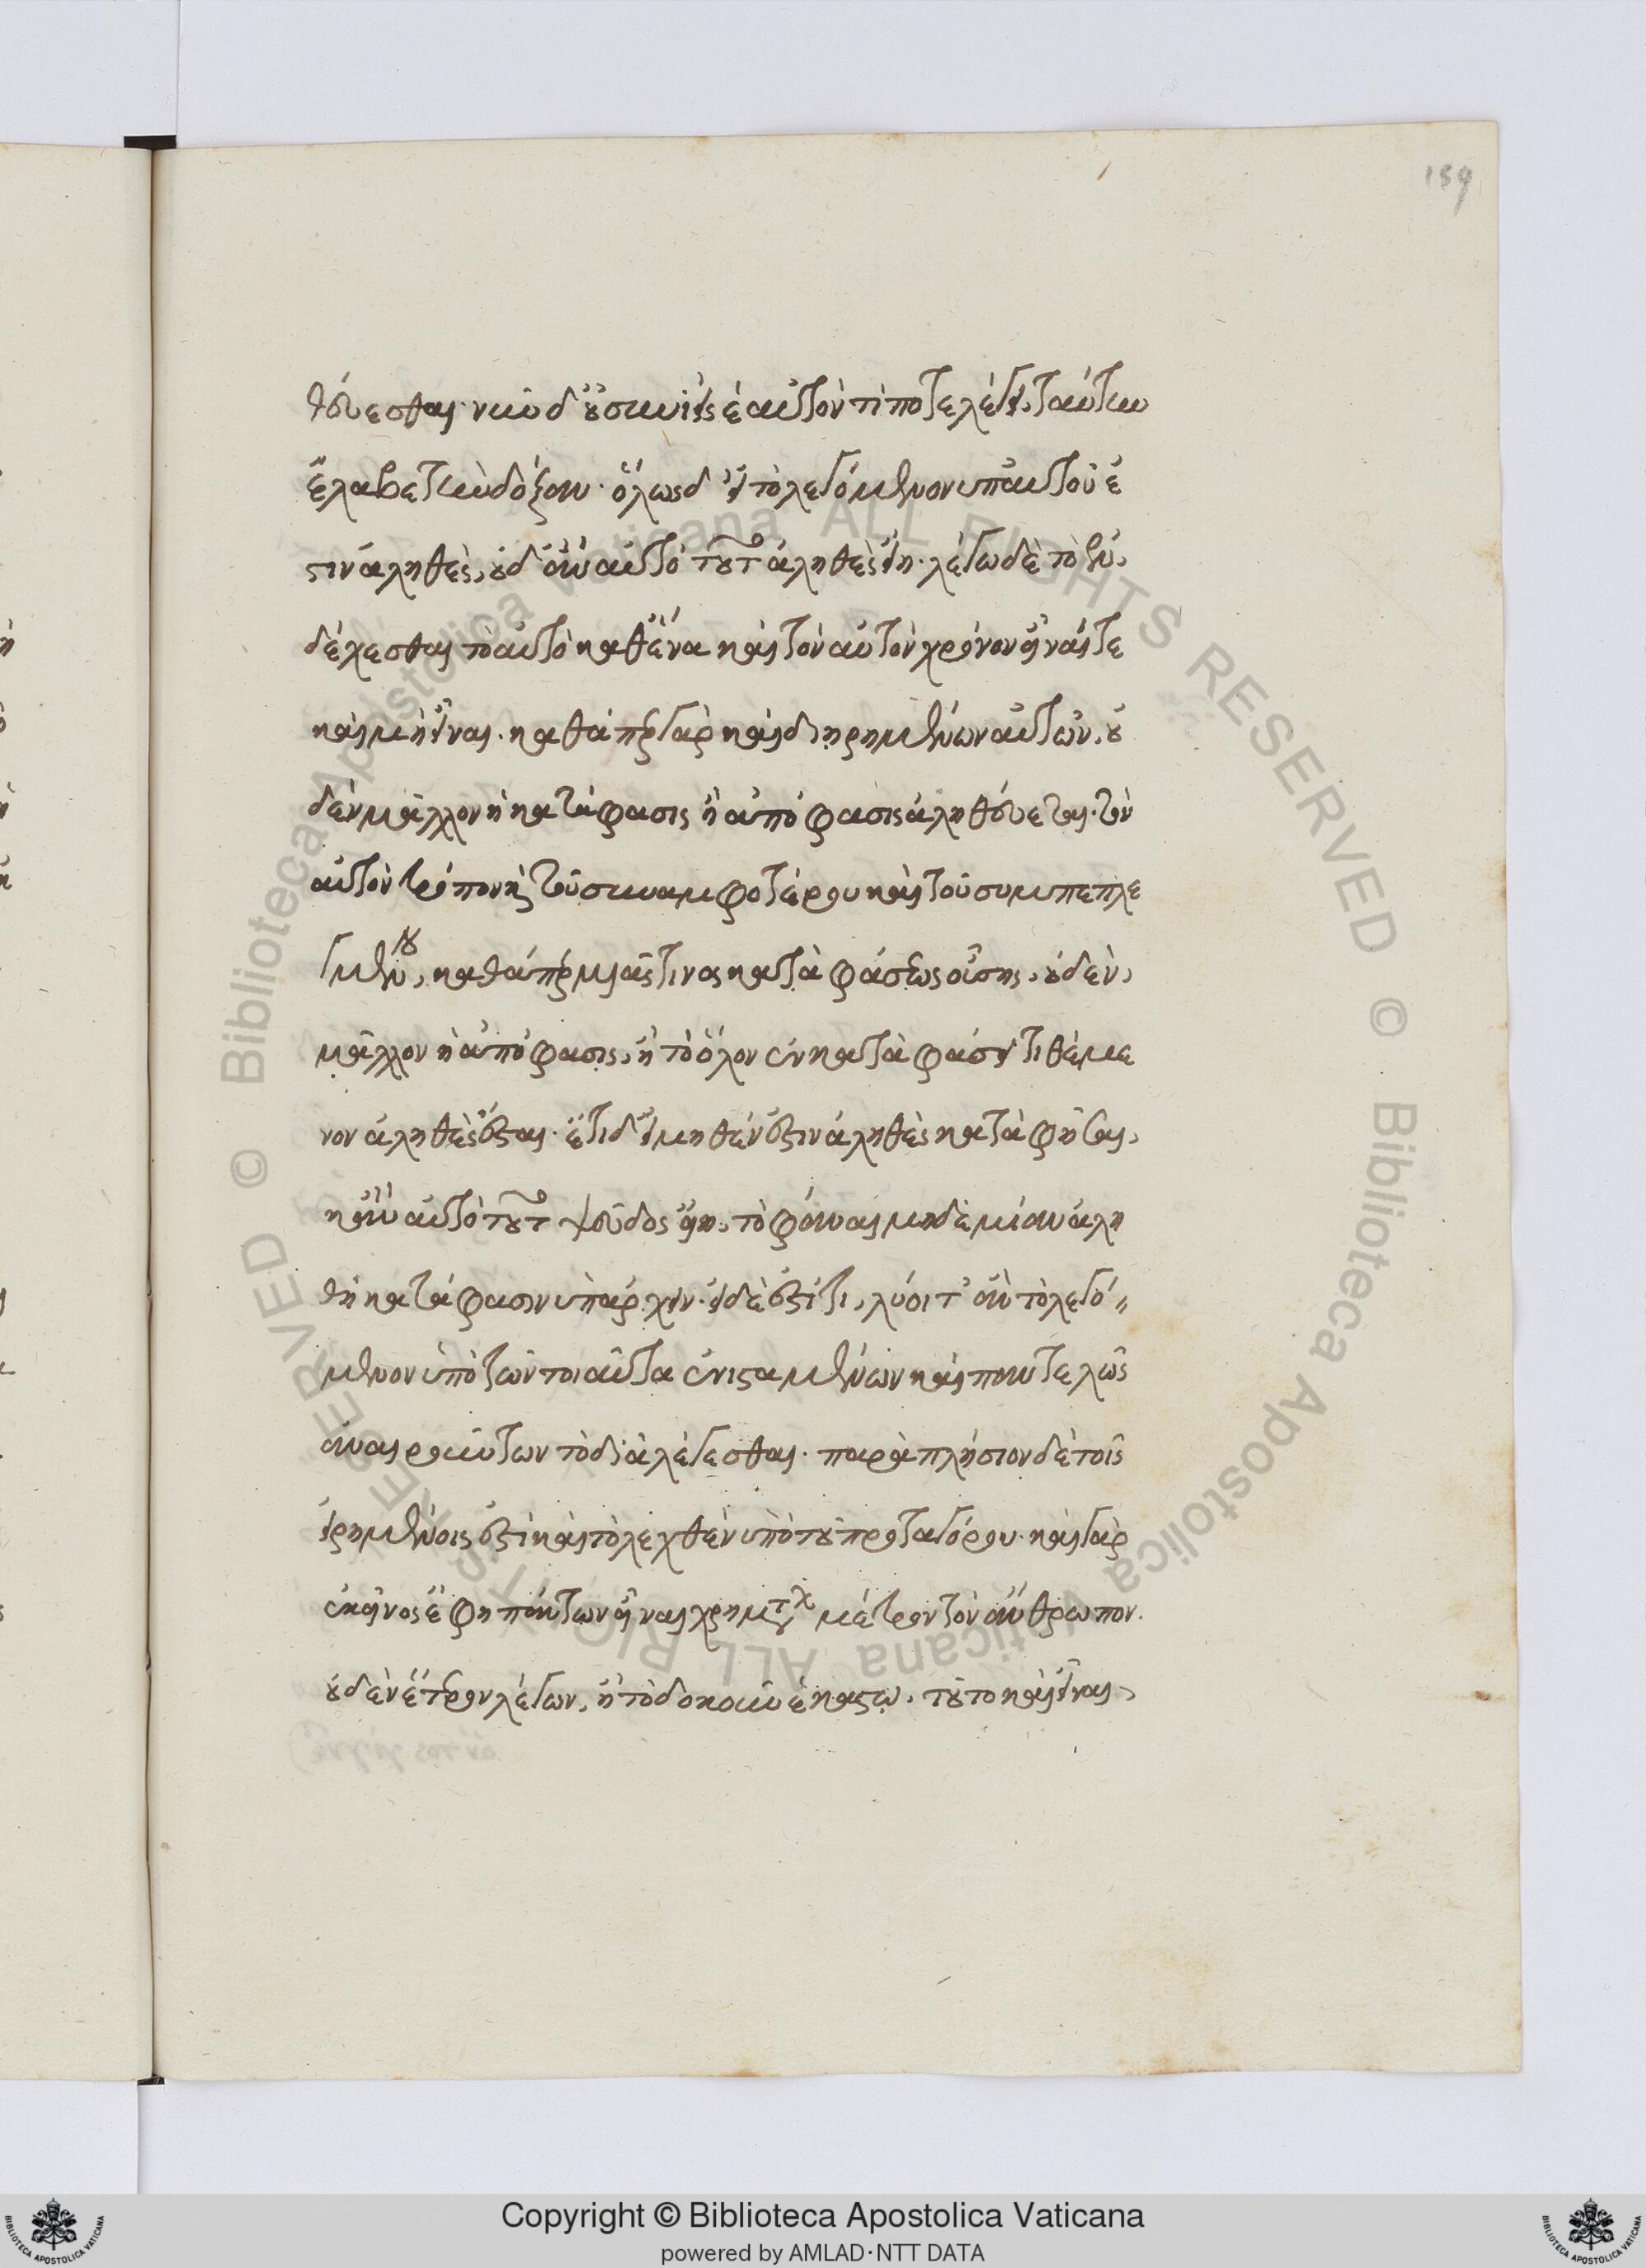 159
θεύεσθαι· νῦν δ' οὐ συνιεὶς ἑαυτὸν τί ποτε λέγει, ταύτην
ἔλαβε τὴν δόξαν· ὅλως δ' εἰ τὸ λεγόμενον ὑπ' αὐτοῦ ἐ
στιν ἀληθὲς, οὐδ' ἂν αὐτὸ τοῦτ' ἀληθὲς εἴη· λέγω δὲ τὸ ἐν
δέχεσθαι τὸ αὐτὸ καθ' ἕνα καὶ τὸν αὐτὸν χρόνον εἶναί τε
καὶ μὴ εἶναι· καθάπερ γὰρ καὶ διῃρημένων αὐτῶν, οὐ
δὲν μᾶλλον ἡ κατάφασις ἢ ἀπόφασις ἀληθεύεται· τὸν
αὐτὸν τρόπον καὶ τοῦ συναμφοτέρου καὶ τοῦ συμπεπλε
γμένου, καθάπερ μιᾶς τινος καταφάσεως οὔσης, οὐδὲν
μᾶλλον ἡ ἀπόφασις, ἢ τὸ ὅλον ἐν καταφάσει τιθέμε
νον ἀληθὲς ἔσται· ἔτι δ' εἰ μηθέν ἐστιν ἀληθὲς καταφῆσαι,
κἂν αὐτὸ τοῦτ ψεῦδος εἴη, τὸ φάναι μηδεμίαν ἀλη
θῆ κατάφασιν ὑπάρχειν· εἰ δὲ ἔστι τι, λύοιτ' ἂν τὸ λεγό
μενον ὑπὸ τῶν τοιαῦτα ἐνισταμένων καὶ παντελῶς
ἀναιρούντων τὸ διαλέγεσθαι· παραπλήσιον δὲ τοῖς
εἰρημένοις ἐστὶ καὶ τὸ λεχθὲν ὑπὸ τοῦ πρωταγόρου· καὶ γὰρ
ἐκεῖνος ἔφη πάντων εἶναι χρημάτων μέτρον τὸν ἄνθρωπον.
οὐδὲν ἕτερον λέγων, ἢ τὸ δοκοῦν ἑκάστῳ, τοῦτο καὶ εἶναι
Copyright © Biblioteca Apostolica Vaticana
powered by AMLAD·NTT DATA